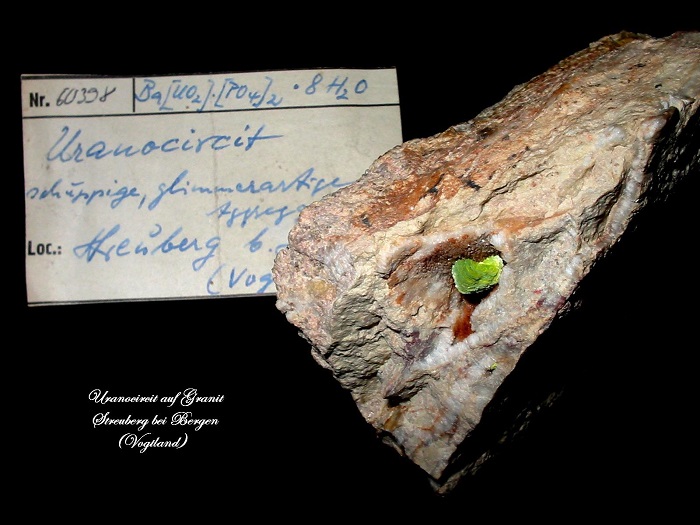 Nr. 60398 Ba[UO2]·[PO4]2 · 8 H2O
Uranocircit
schuppige, glimmerartige
Aggreg
Loc.: Streuberg b.
(Vog
Uranocircit auf Granit
Streuberg bei Bergen
(Vogtland)